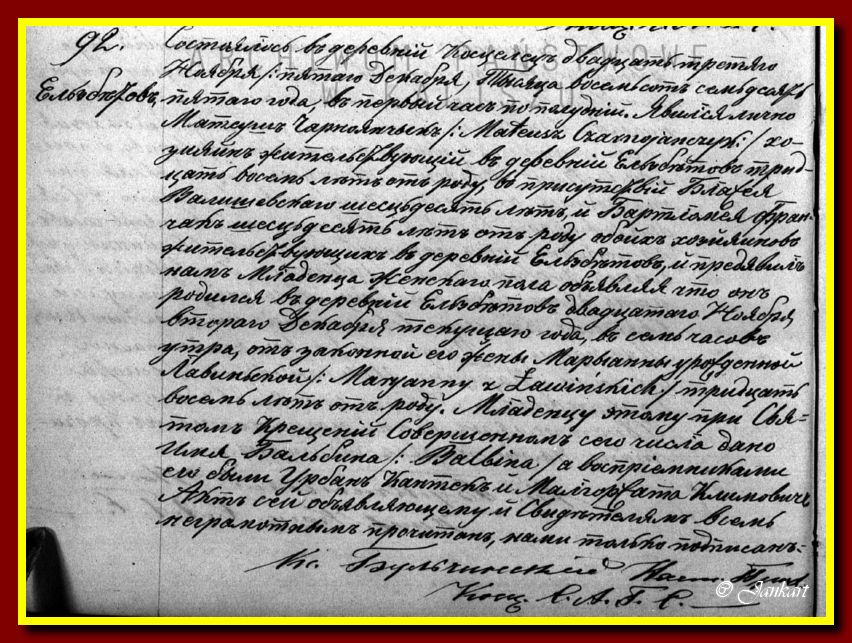 92.
Ельзбѣтовъ
Состоялось въ деревнѣй Косцелецъ двадцать третяго
Ноября /: пятаго Декабря, тысяца восемьсотъ семьдсятъ
пятаго года, въ первый часъ по полудни. Явился лично
Матеушъ Чарнояньчыкъ /: Mateusz Czarnojanczyk :/ хо-
зяинъ жительствующій въ деревнѣй Ельзбѣтовъ трид-
цать восемь лѣтъ отъ роду, въ присутствій Блажея
Валишевскаго шесцьдесятъ лѣтъ, й Бартломея Фран-
чакъ шесцьдесятъ лѣтъ отъ роду обойхъ хозяиновъ
жительствующихъ въ деревнѣй Ельзбѣтовъ, й предявилъ
намъ Младенца женскаго пола объявляя что онъ
родился въ деревнѣй Ельзбѣтовъ двадцатаго Ноября
втораго Декабря текущаго года, въ семь часовъ
утра, отъ законной его жены Марыанны урожденной
Лавиньской /: Maryanny z Ławińskich :/ тридцать
восемь лѣтъ отъ роду. Младенцу этому при Свя-
томъ Крещеній Совершенномъ сего числа дано
имя Бальбина /: Balbina / а воспріемниками
его были Урбанъ Кантекъ и Малгоржата Климовичъ
Актъ сей объявляющему й Свидѣтелямъ всемъ
неграмотнымъ прочитанъ, нами только подписанъ.-
Кс. Бульчинскій
С. А. Г. С.
© Jankart